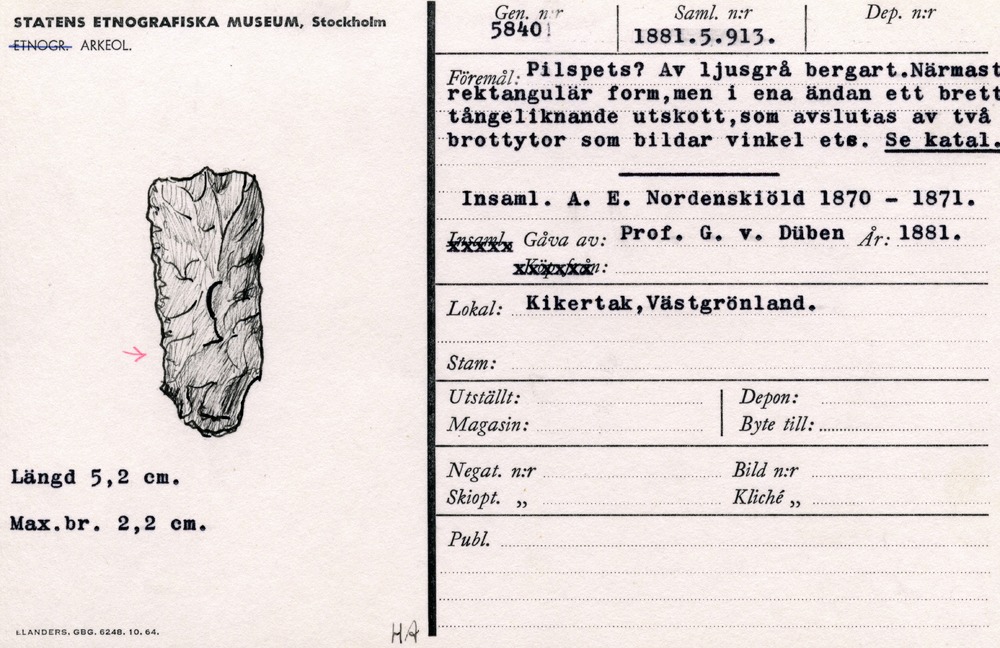 STATENS ETNOGRAFISKA MUSEUM, Stockholm
ETNOGR. ARKEOL.
Gen. n:r
5840
Saml. n:r
1881.5.913.
Dep. n:r
Föremål: Pilspets? Av ljusgrå bergart.Närmast
rektangulär form,men i ena ändan ett brett
tångeliknande utskott,som avslutas av två
brottytor som bildar vinkel ets. Se katal.
Insaml. A. E. Nordenskiöld 1870 - 1871.
Insaml. Gåva av: Prof. G. v. Düben År: 1881.
Köpt från:
Lokal: Kikertak,Västgrönland.
Stam:
Utställt:
Depon:
Magasin:
Byte till:
Negat. n:r
Bild n:r
Skiopt. „
Kliché „
Publ.
Längd 5,2 cm.
Max.br. 2,2 cm.
ELANDERS. GBG. 6248. 10. 64.
HA